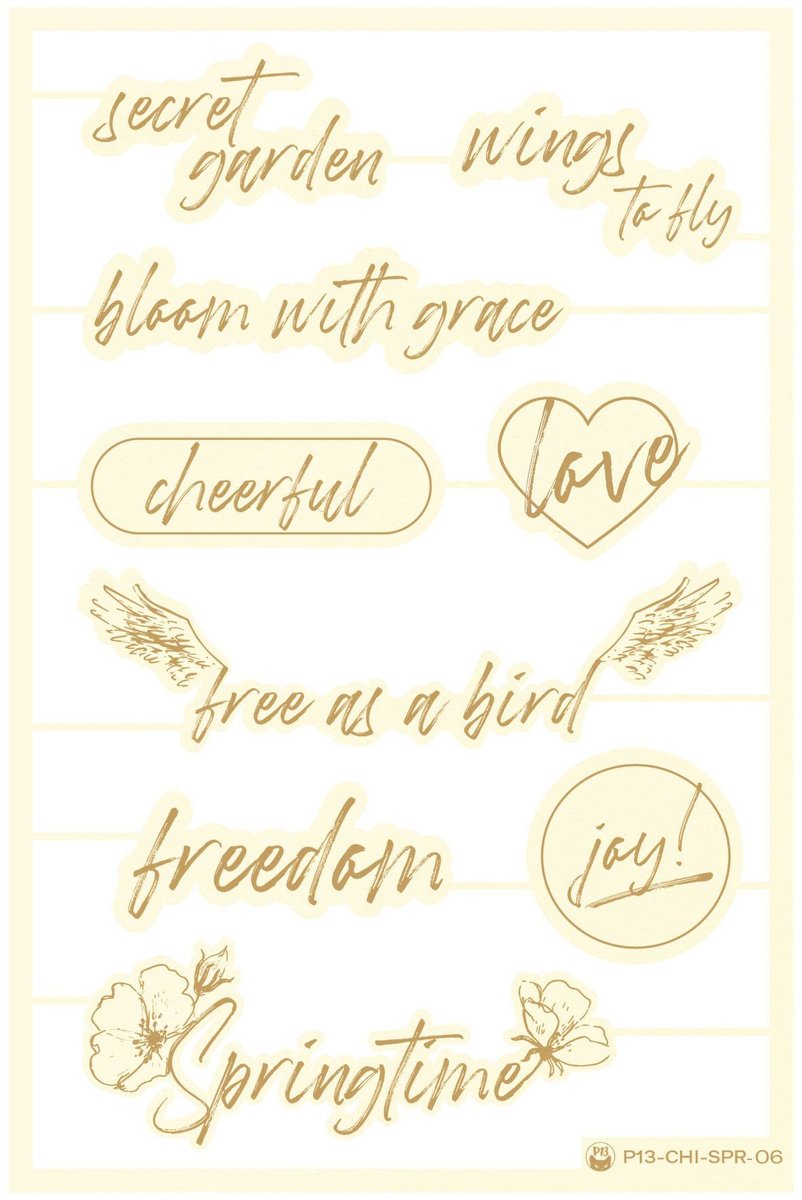 secret
garden
wings
to fly
bloom with grace
cheerful
love
free as a bird
freedom
joy!
Springtime
P13
P13-CHI-SPR-06